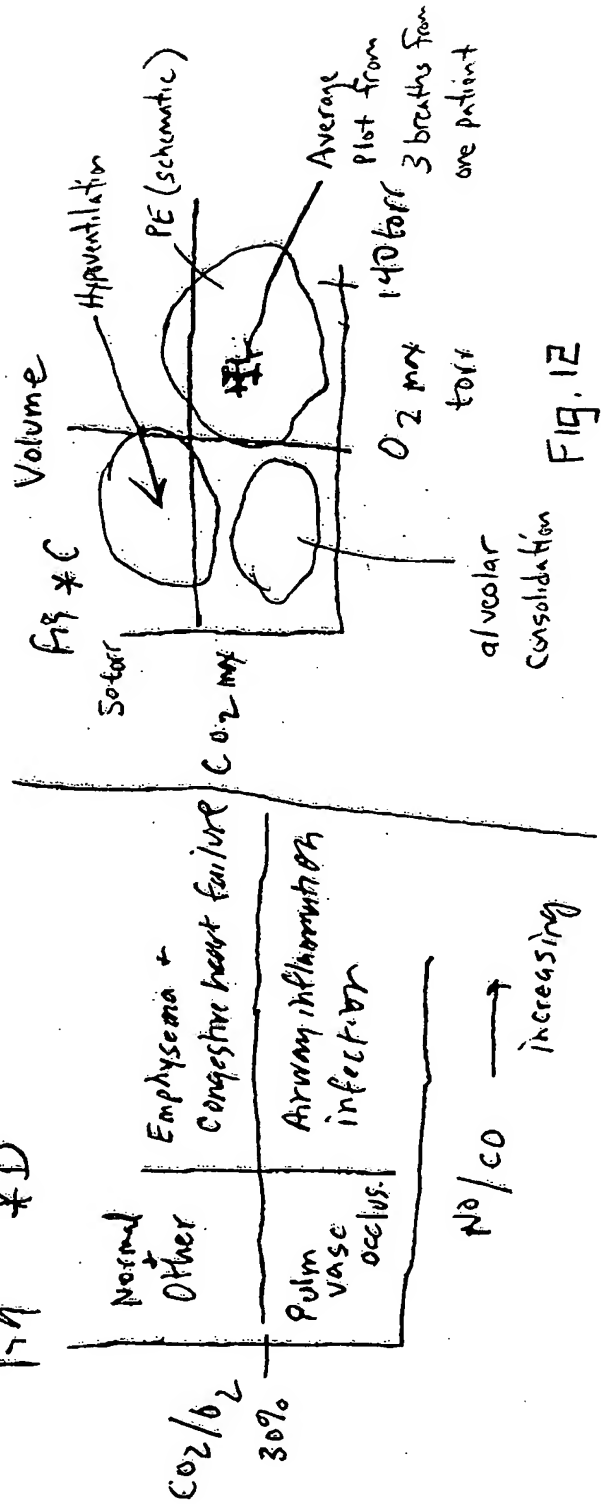 Fig *D
CO2/O2
30%
Normal
+
Other
Emphysema +
Congestive heart failure
Pulm
vasc
occlus.
Airway inflammation
infection
NO/CO
increasing
Fig *C
Volume
50torr
CO2 max
Hypoventilation
PE (schematic)
Average
Plot from
3 breaths from
one patient
alveolar
consolidation
O2 max
torr
140torr
Fig. 12